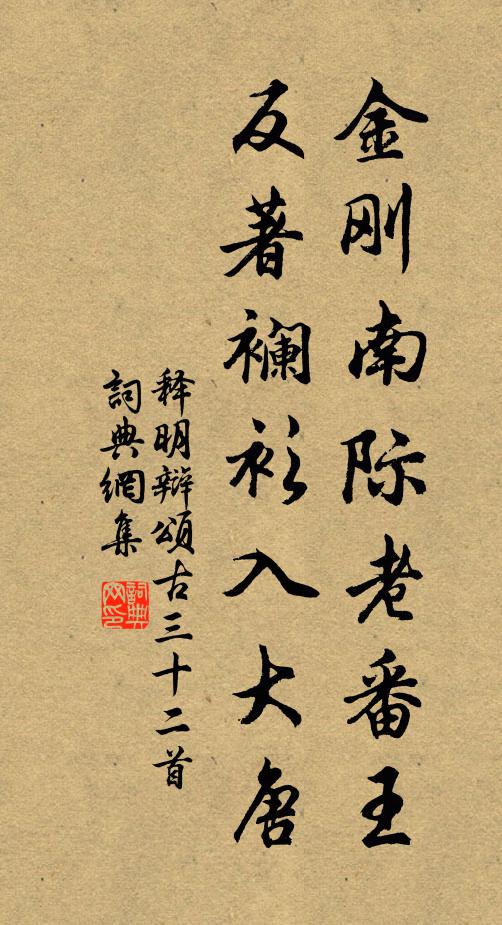 金刚南际老番王
反著襕衫入大唐
释明辩颂古三十二首
詞典網集
詞典网印